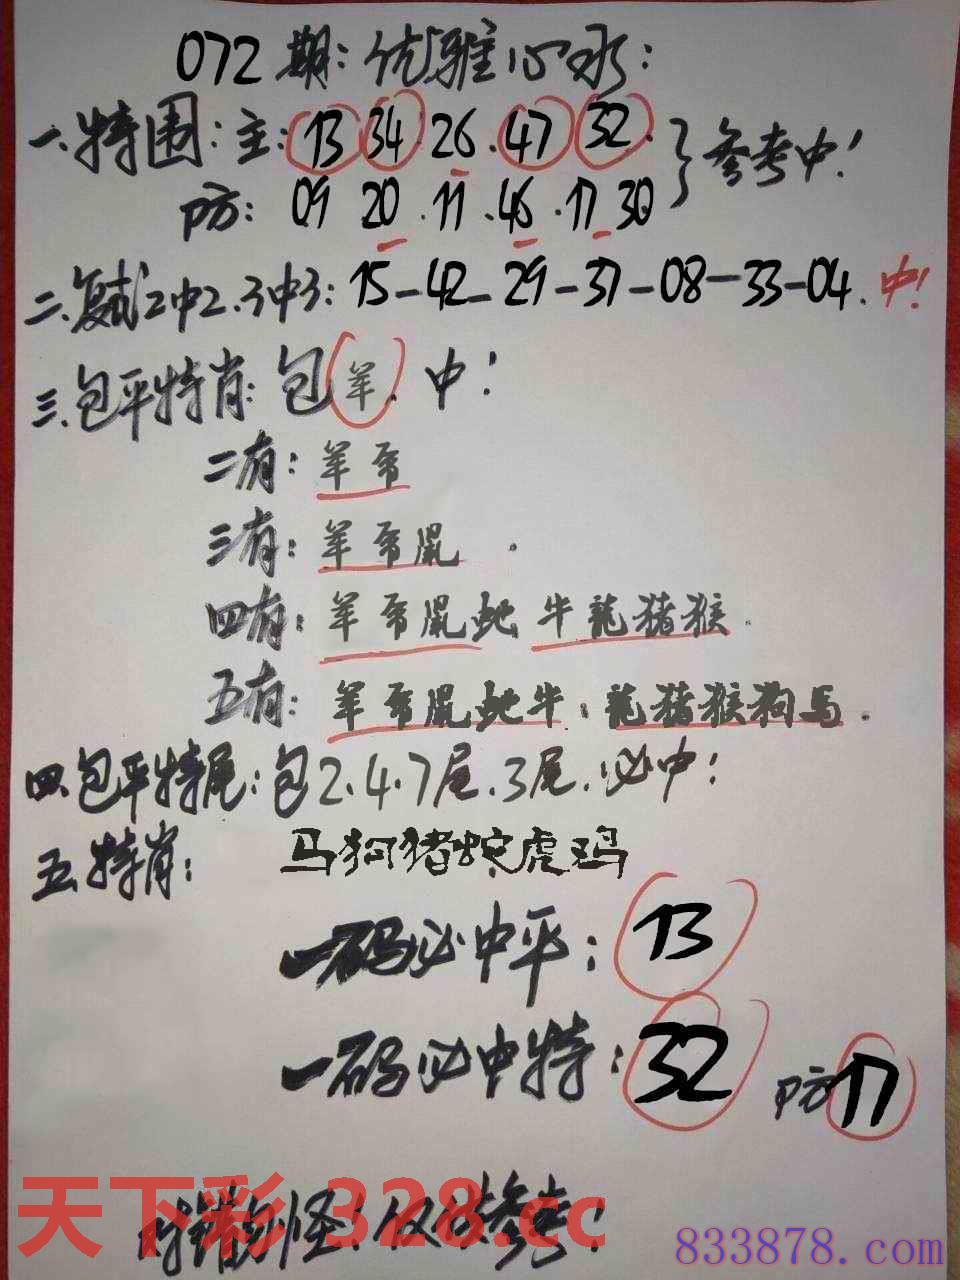 072期:优雅心水:
一.特围:主:13 34 26.47 32.}参考中!
防:09 20.11.46.17 30
二.复式2中2.3中3:15-42-29-37-08-33-04.中!
三.包平特肖:包羊.中!
二有:羊兔
三有:羊兔鼠.
四有:羊兔鼠蛇 牛龍猪猴.
五有:羊兔鼠蛇牛:龍猪猴狗马.
四.包平特尾:包2.4.7尾.3尾.必中!
五.特肖:马狗猪蛇虎鸡
一码必中平:13
一码必中特:32 防17
对错勿怪!仅供参考!
天下彩 328.cc
833878.com